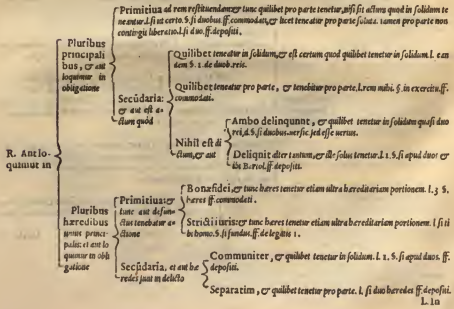 Primitiua ad rem restituendam: & tunc quilibet pro parte tenetur, nisi sit actum quod in solidum te
neantur. l. si ut certo. §. si duobus. ff. commodati, & licet teneatur pro parte soluta. tamen pro parte non
contingit liberatio. l. si duo. ff. depositi.
Pluribus
principali
bus, & aut
loquimur in
obligatione
Quilibet teneatur in solidum, & est certum quod quilibet tenetur in solidum. l. ean
dem §. 1. de duob. reis.
Secũdaria:
& aut est a-
ctum quòd
Quilibet teneatur pro parte, & tenebitur pro parte. l. rem mihi. §. in exercitu. ff.
commodati.
Nihil est di
ctum, & aut
Ambo delinquunt, & quilibet tenetur in solidum quasi duo
rei, d. §. si duobus. uersic. sed esse uerius.
Deliquit alter tantum, & ille solus tenetur. l. 1. §. si apud duos &
ibi Bartol. ff. depositi.
R. Aut lo-
quimur in
Pluribus
hæredibus
unius princi-
palis: et aut lo
quimur in obli
gatione
Primitiua: &
tunc aut defun-
ctus tenebatur a-
ctione
Bonæ fidei, & tunc hæres tenetur etiam ultra hæreditariam portionem. l. 3 §.
hæres ff. commodati.
Stricti iuris: & tunc hæres tenetur etiam ultra hæreditariam portionem. l si ti
bi homo. §. si fundus. ff. de legatis 1.
Secũdaria, et aut hæ
redes sunt in delicto
Communiter, & quilibet tenetur in solidum. l. 1. §. si apud duos. ff.
depositi.
Separatim, & quilibet tenetur pro parte. l. si duo hæredes ff. depositi.
L. In